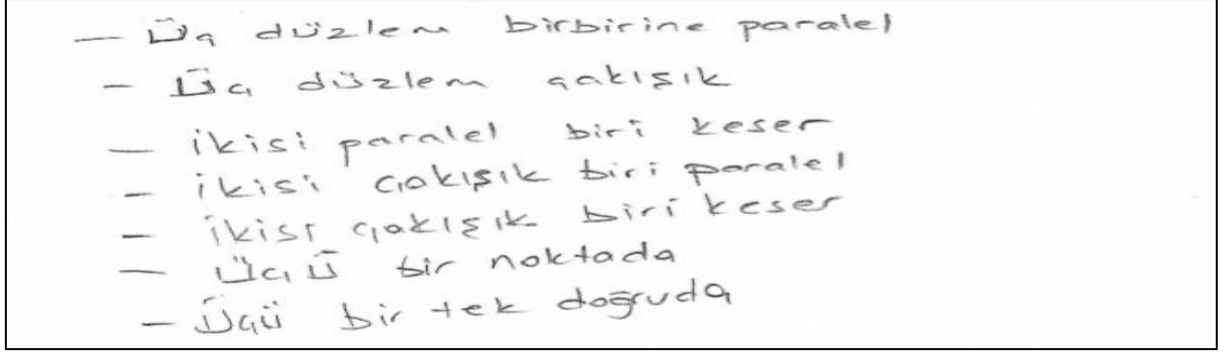 — Üç düzlem birbirine paralel
- Üç düzlem çakışık
— ikisi paralel biri keser
- ikisi çakışık biri paralel
- ikisi çakışık biri keser
— Üçü bir noktada
- Üçü bir tek doğruda